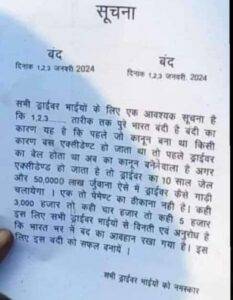 सूचना
बंद बंद
दिनाक 1,2,3 जनवरी 2024 दिनाक 1,2,3 जनवरी, 2024
सभी ड्राईवर भाईयों के लिए एक आवश्यक सूचना है
कि 1,2,3...... तारीक तक पुरे भारत बंदी है बंदी का
कारण यह है कि पहले जो कानून बना था किसी
कारण बस एक्सीडेन्ट हो जाता था तो पहले ड्राईवर
का बेल होता था अब का कानून बनेनेवाला है अगर
एक्सीडेन्ट हो जाता है तो ड्राईवर का 10 साल जेल
और 50,0000 लाख जुंवाना ऐसे में ड्राईवर कैसे गाड़ी
चलायेगा । एक तो पेमेण्ट का ठीकाना नहीं है। कही
3,000 हजार तो कही चार हजार तो कही 5 हजार
इस लिए सभी ड्राईवर भाईयों से विनती एवं अनुरोध है
कि भारत भर में बंद का आवहान रखा गया है। इस
लिए इस बंदी को सफल बनायें ।
सभी ड्राईवर भाईयों को नमस्कार